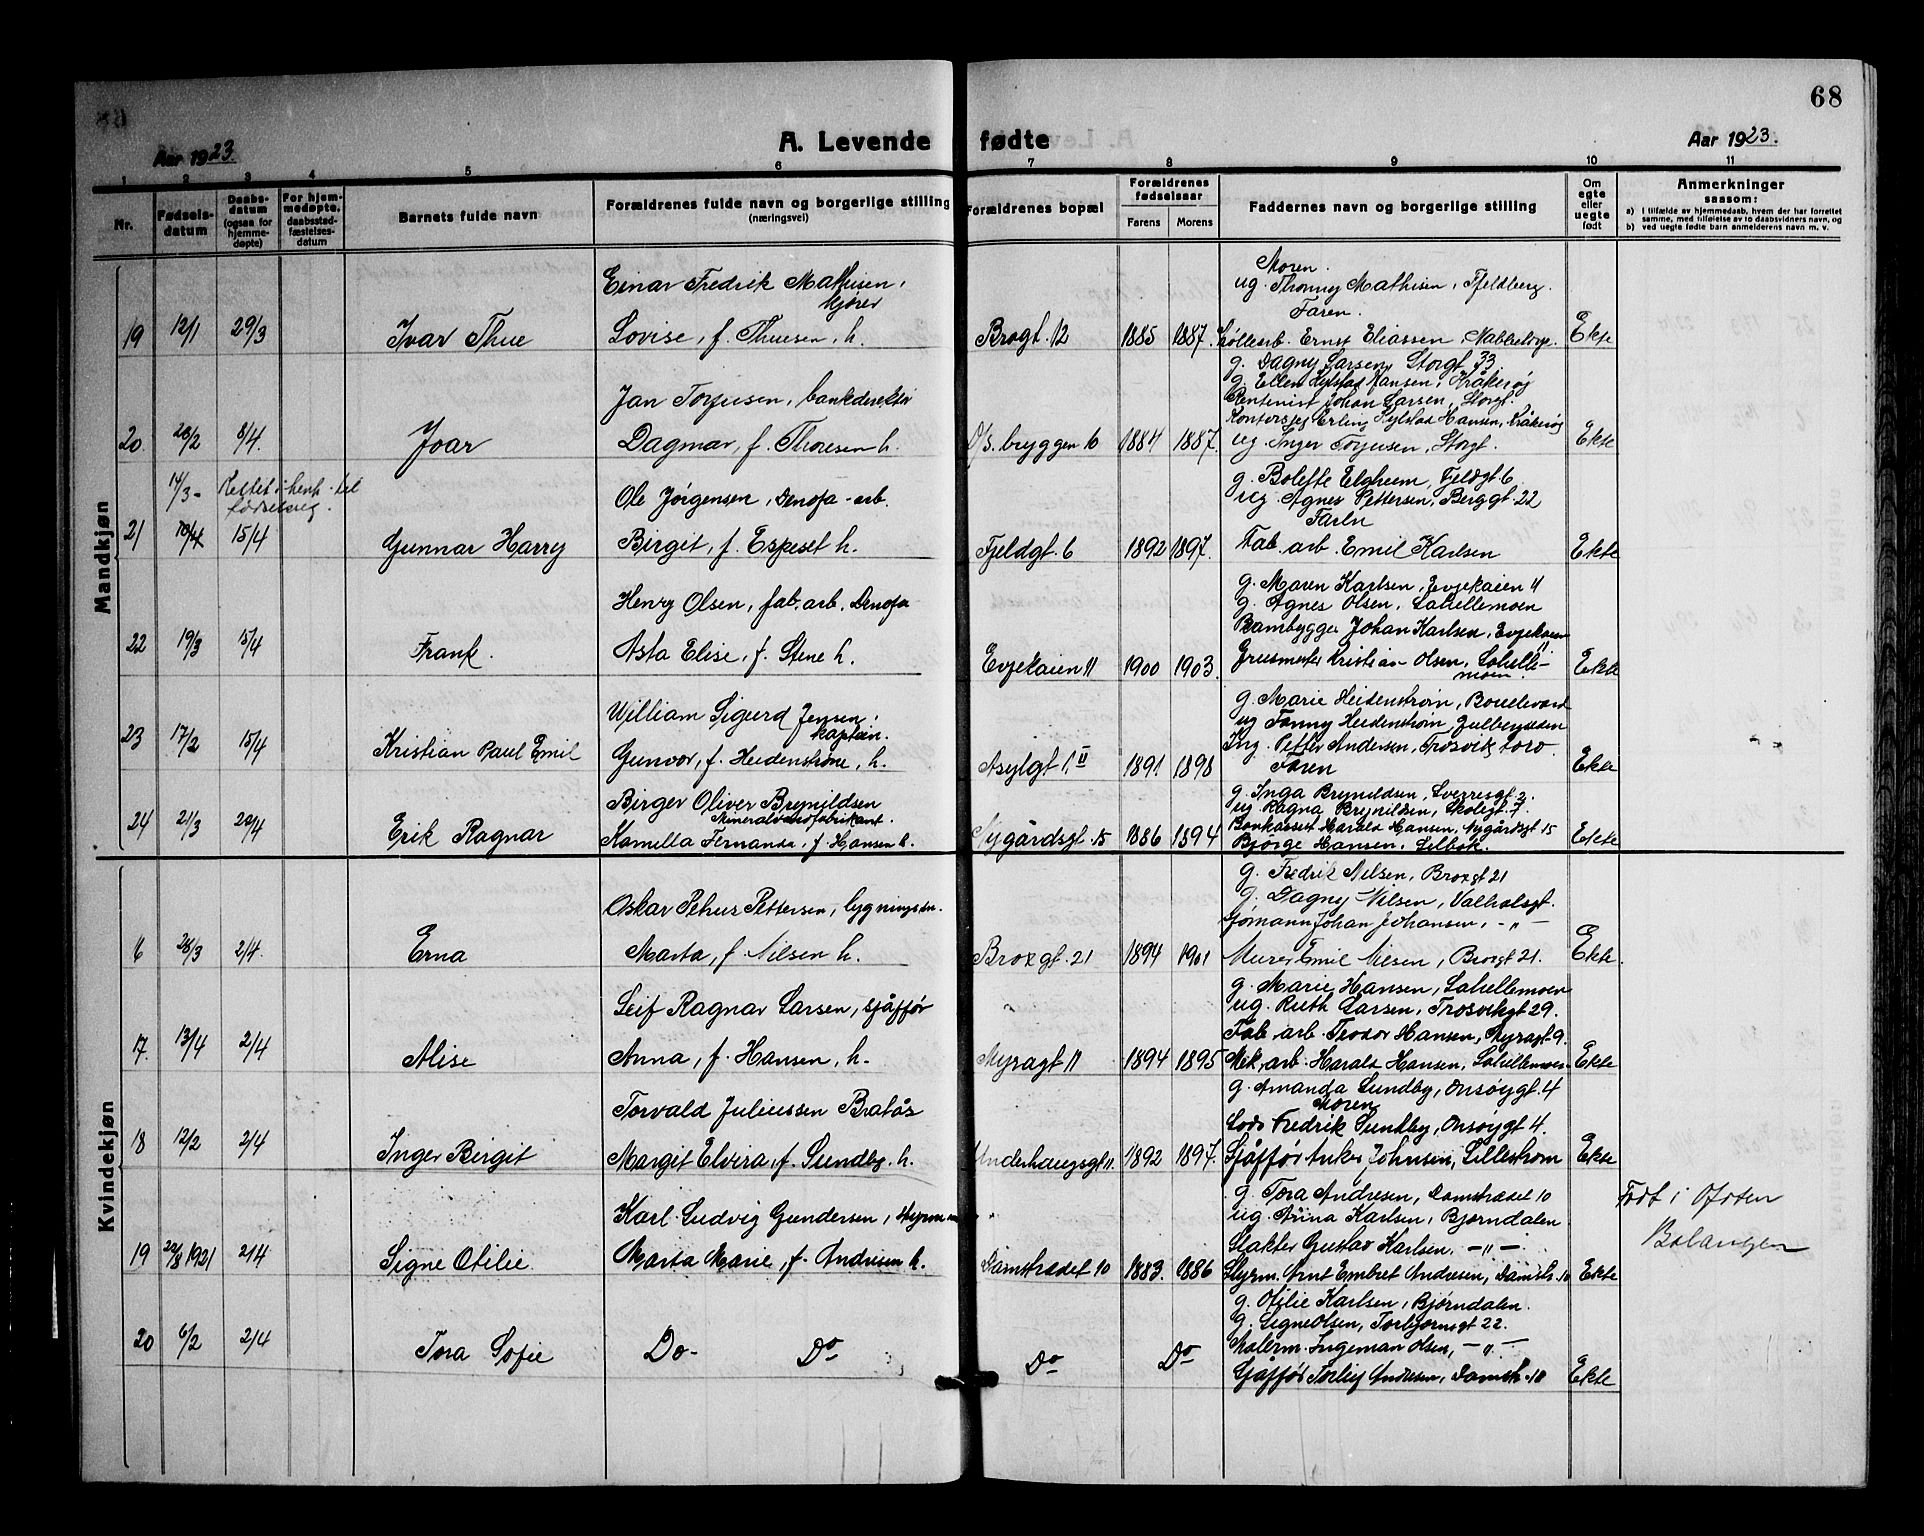 68
Aar 1923.
A. Levende fødte
Aar 1923.
1 2 3 4 5 6 7 8 9 10 11
Nr.
Fødsels-datum
Daabs-datum (ogsaa for hjemme-døpte)
For hjem-medøpte. daabsstad-fæstelses-datum
Barnets fulde navn
Forældrenes fulde navn og borgerlige stilling (næringsvei)
Forældrenes bopæl
Forældrenes fødselsaar
Farens Morens
Faddernes navn og borgerlige stilling
Om egte eller uegte født
Anmerkninger saasom:
a) i tilfælde av hjemmedaab, hvem der har forrettet samme, med tilføielse av to daabsvidners navn, og
b) ved uegte fødte barn anmelderens navn m. v.
Mandkjøn
Einar Fredrik Mathisen, kjører
19 12/1 29/3 Ivar Thue Lovise, f. Thuesen, h. Brogt. 12 1885 1887.
Moren.
ug. Thonny Mathisen, Fjeldberg.
Faren.
Ernst Eliassen, Ekte
Jan Torjusen, bankdirektør
20 28/2 8/4. Joar Dagmar, f. Thoresen h. D/s. bryggen 10 1884 1887.
g. Dagny Larsen, Storgt 33
g. Ellen Kylstad Hansen, Kråkerøy
Rentenist Johan Larsen, Storgt.
Kontorsjef Erling Kylstad Hansen, Kråkerøy
ug. Inger Torjusen, Storgt. Ekte
14/3 - Rettet i henh. til fødselsreg.
Ole Jørgensen, Denofa-arb.
21 10/4 15/4 Gunnar Harry Birgit, f. Espeset h. Fjeldgt. 6 1892 1897.
g. Bolette Elgheem, Fjeldgt 6
ug. Agnes Pettersen, Berggt. 22
Faren
Fab. arb. Emil Karlsen Ekte
Henry Olsen, fab. arb. Denofa
22 19/3 15/4 Frank. Asta Elise, f. Stene h. Evjekaien 11 1900 1903.
g. Maren Karlsen, Evjekaien 11
g. Agnes Olsen, Lahellemoen
Johan Karlsen, Evjekaien 11
Kristian Olsen, Lahellemoen Ekte
William Sigurd Jensen, kaptein.
23 17/2 15/4 Kristian Paul Emil Gunvor, f. Heidenstrøm, h. Asylgt 1, II 1891 1898
g. Marie Heidenstrøm, Boulevard
ug. Fanny Heidenstrøm,
Ing. Petter Andersen, Trosvik
Faren Ekte
Birger Oliver Brynildsen
Mineralvandfabrikant.
24 21/3 22/4 Erik Ragnar Kamilla Fernanda, f. Hansen h. Nygårdsgt. 15 1886 1894
g. Inga Brynildsen, Sverresgt. 2.
ug. Ragna Brynildsen, Skolegt. 7.
Bankassist. Harald Hansen, Nygårdsgt 15
Bjørge Hansen, Lilbek. Ekte
Kvindekjøn
Oskar Petrus Pettersen, bygningssn.
6 28/3 2/4. Erna Marta, f. Nilsen h. Broxgt. 21 1894 1901
g. Fredrik Nilsen, Broxgt 21
g. Dagny Nilsen, Valhalsgt.
Sjømann Johan Johansen, -"-
Murer Emil Nilsen, Broxgt 21. Ekte
Leif Ragnar Larsen, sjåffør
17. 13/4 2/4 Alise Anna, f. Hansen, h. Myragt 11 1894 1895
g. Marie Hansen, Lahellemoen
ug. Ruth Larsen, Trosvikgt 29.
Fab. arb. Teodor Hansen, Myragt 9.
Mek. arb. Harald Hansen, Lahellemoen Ekte
Torvald Juliussen Bratås
18 12/2 2/4 Inger Birgit Margit Elvira, f. Sundby, h. Underhaugsgt 11. 1892 1897.
g. Amanda Sundby, Onsøygt. 4
Moren
Lods Fredrik Sundby, Onsøygt 4.
Sjåffør Anker Johnsen, Lillestrøm Ekte
Karl Ludvig Gundersen, styrmann
19 22/8 1921 2/4 Signe Otilie Marta Marie, f. Andresen h. Damstrædet 10 1883. 1886
g. Tora Andresen, Damstrædet 10
ug. Anna Karlsen, Bjørndalen
Slakter Gustav Karlsen, -"-
Styrm. Arnt Embret Andresen, Damstr. 10 Ekte
Født i Ofoten
Balangen
20 6/2 2/4 Tora Sofie Do- Do Do Do
g. Otilie Karlsen, Bjørndalen.
g. Signe Olsen, Torbjørnsgt 22.
Malerm. Ingeman Olsen, -"-
Sjåffør Torleif Andresen, Damstr. 10 Ekte